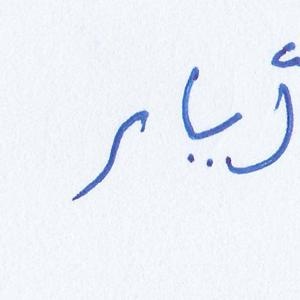 أيار